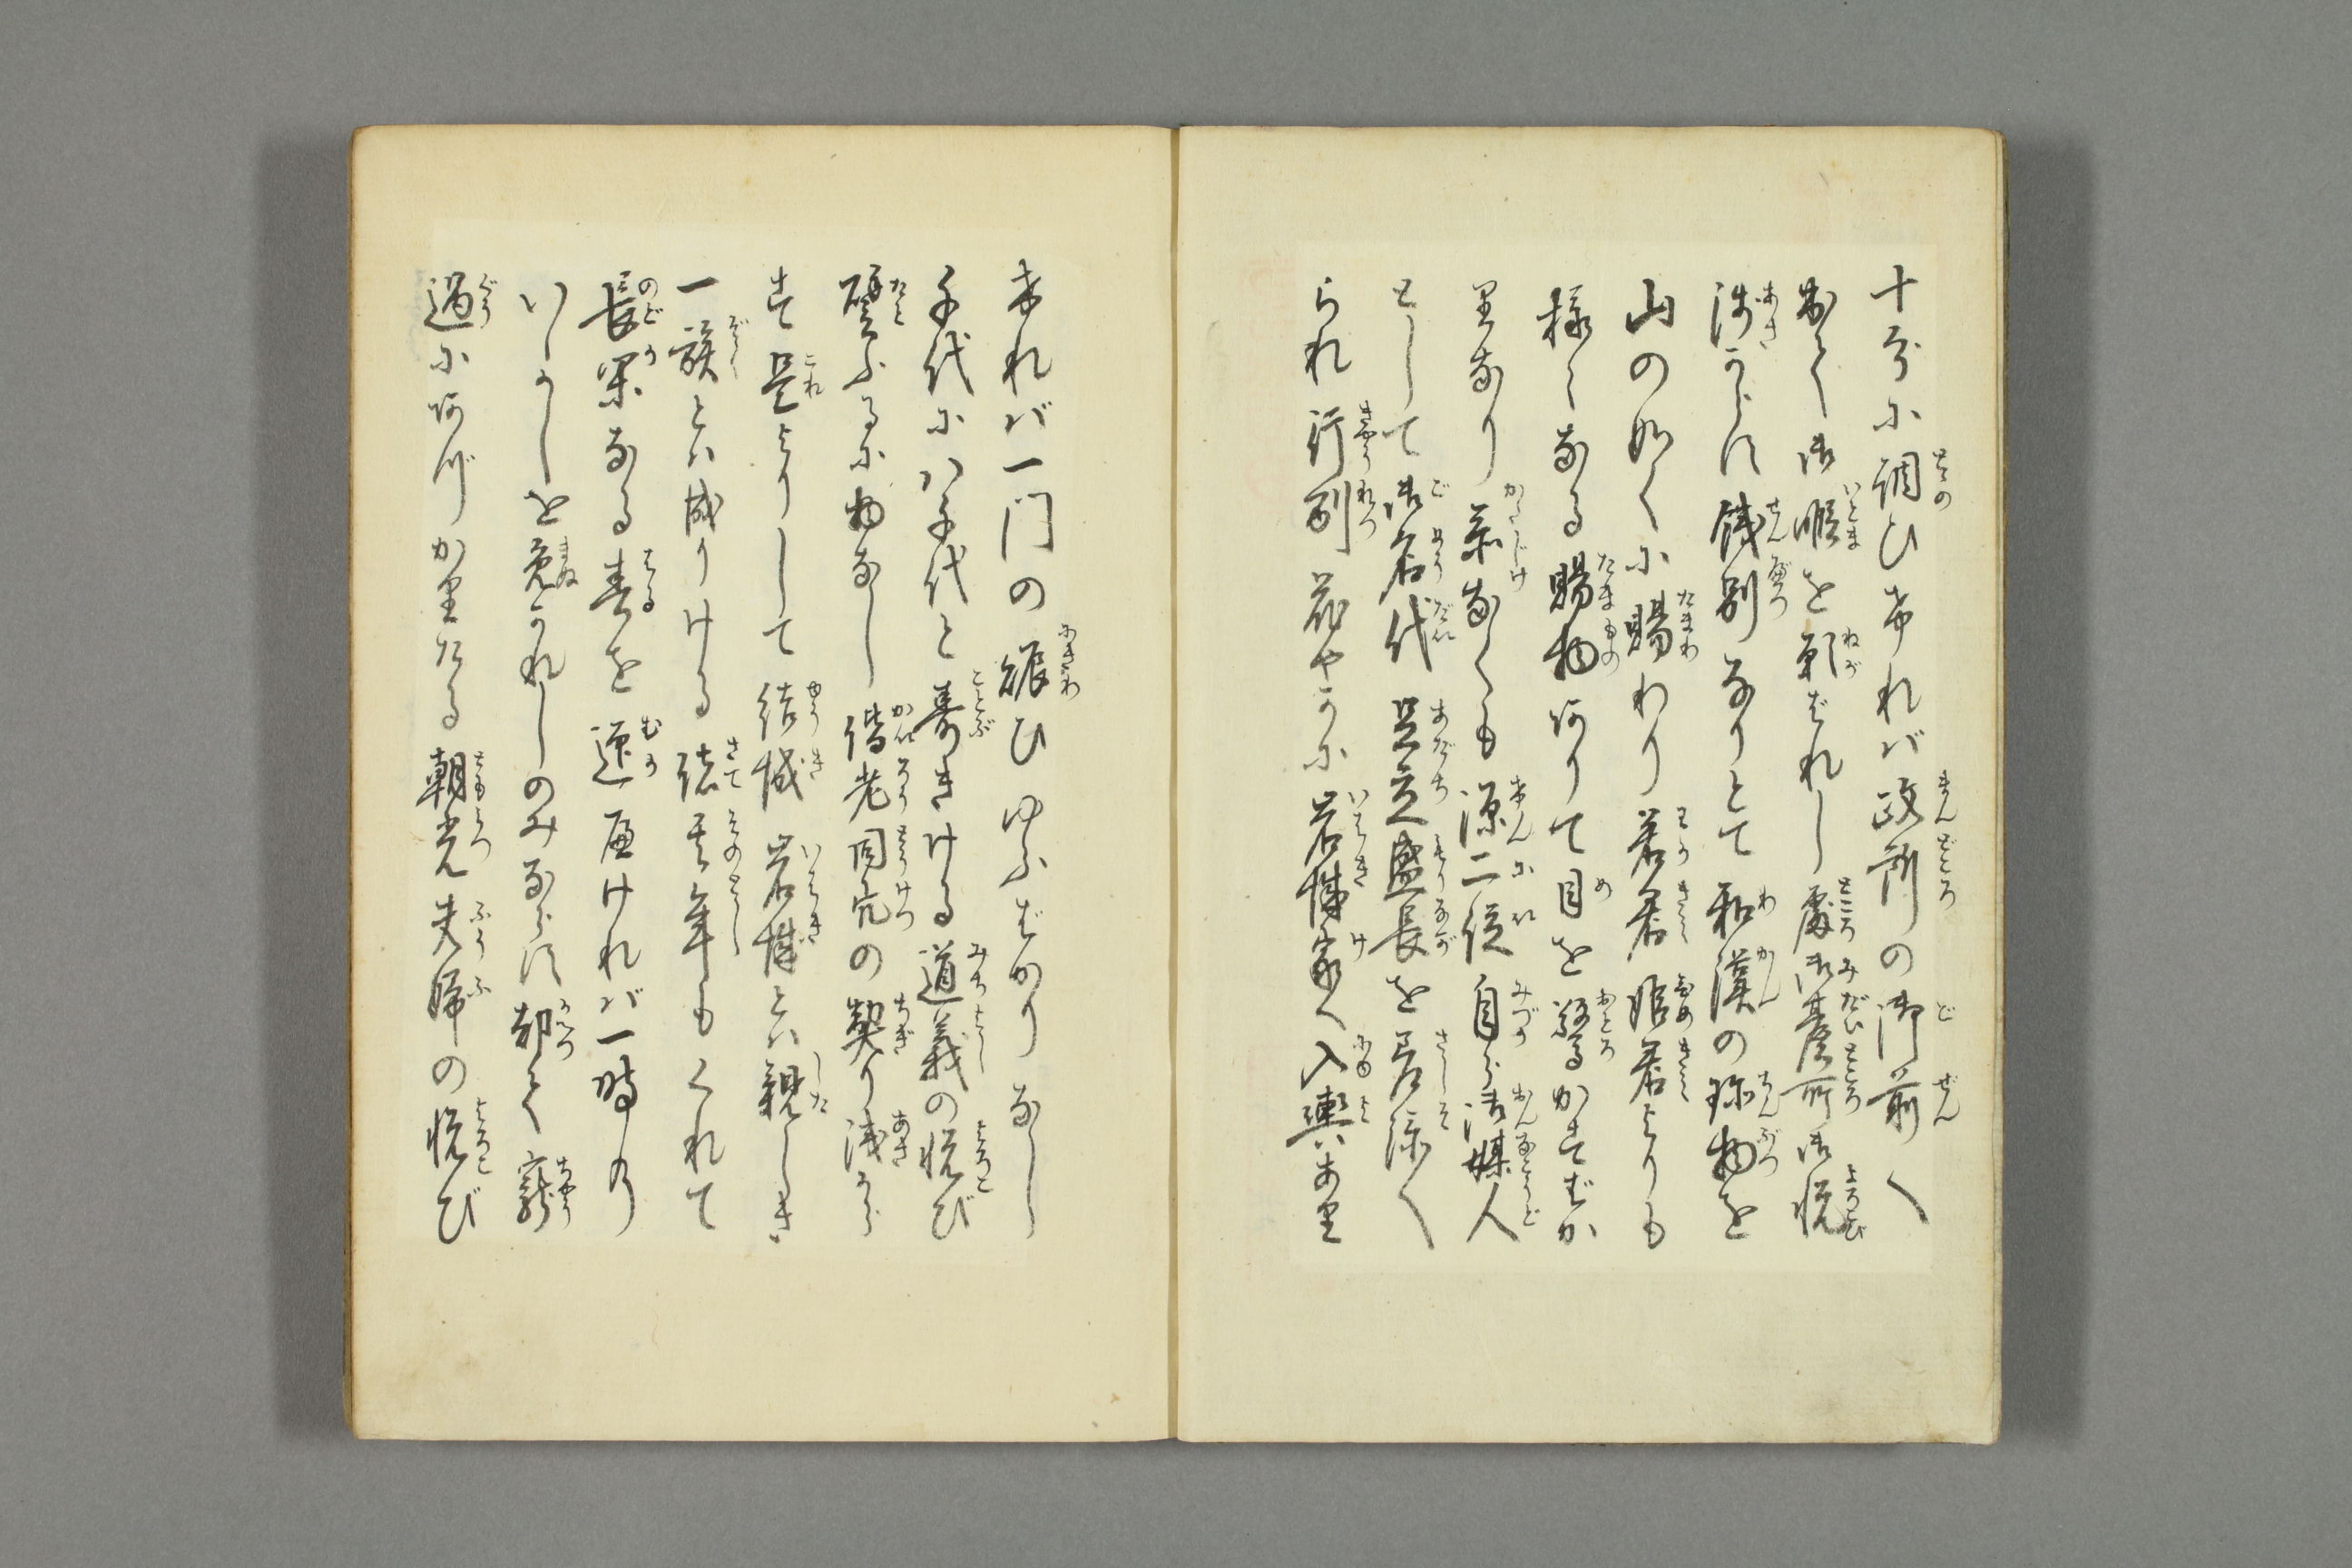 十分に調ひければ政所の御前へ
出て御暇を願ばれし處御臺所御悦
浅からず餞別なりとて和漢の珍物を
山の如くに賜わり若君姫君よりも
様々なる賜物ありて目を驚かすばか
里なり忝なくも源二位自ら御媒人
として御名代足立盛長を差添へ
られ行列花やかに岩城家へ入輿あ里
ければ一門の賑ひゆふばかりなし
千代に八千代と壽きける道義の悦び
譬ふるに物なし偕老同穴の契り浅から
す是よりして結城岩城とハ親しき
一族とハ成りける扨其年もくれて
長閑なる春を迎へけれバ一時の
いつしを免かれしのみならす却て寵
遇にあづか里たる朝光夫婦の悦び